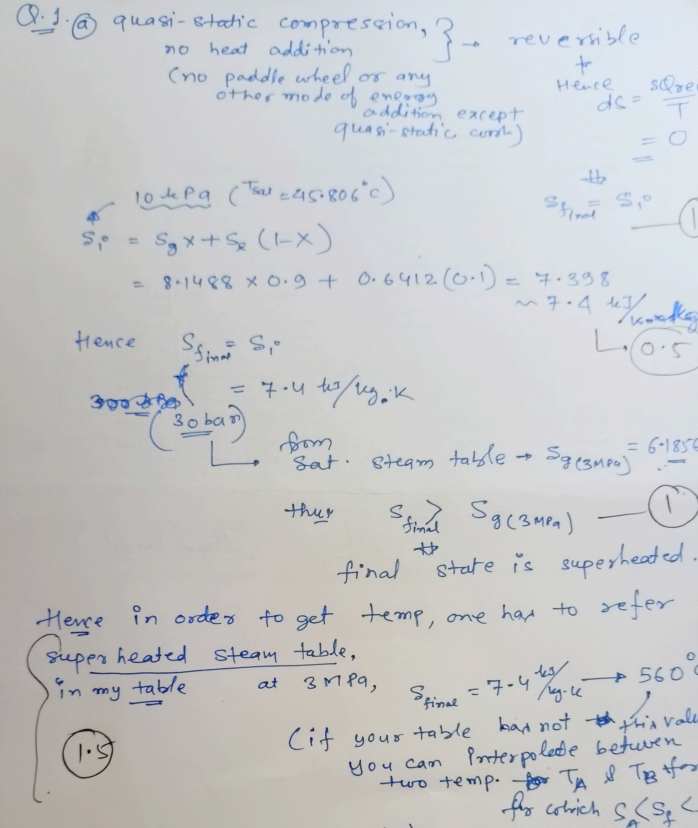 Q.1. (a) quasi-static compression,
no heat addition } → reversible
(no paddle wheel or any
other mode of energy
addition except
quasi-static work)
Hence
ds = δQre
T
= 0
S_final = S_i
1
10 kPa (T_sat = 45.806°C)
S_i = S_g x + S_l (1-x)
= 8.1488 x 0.9 + 0.6412 (0.1) = 7.398
~ 7.4 kJ/
0.5
Hence S_final = S_i
= 7.4 kJ/kg.K
(30 bar)
from
Sat. steam table → S_g(3MPa) = 6.1856
thus S_final > S_g(3MPa) — 1
final state is superheated.
Hence in order to get temp, one has to refer
superheated steam table,
in my table at 3 MPa, S_final = 7.4 kJ/kg-K → 560°
(if your table has not this valu
1.5
you can interpolate between
two temp. T_A & T_B for
for which S_A < S_f <